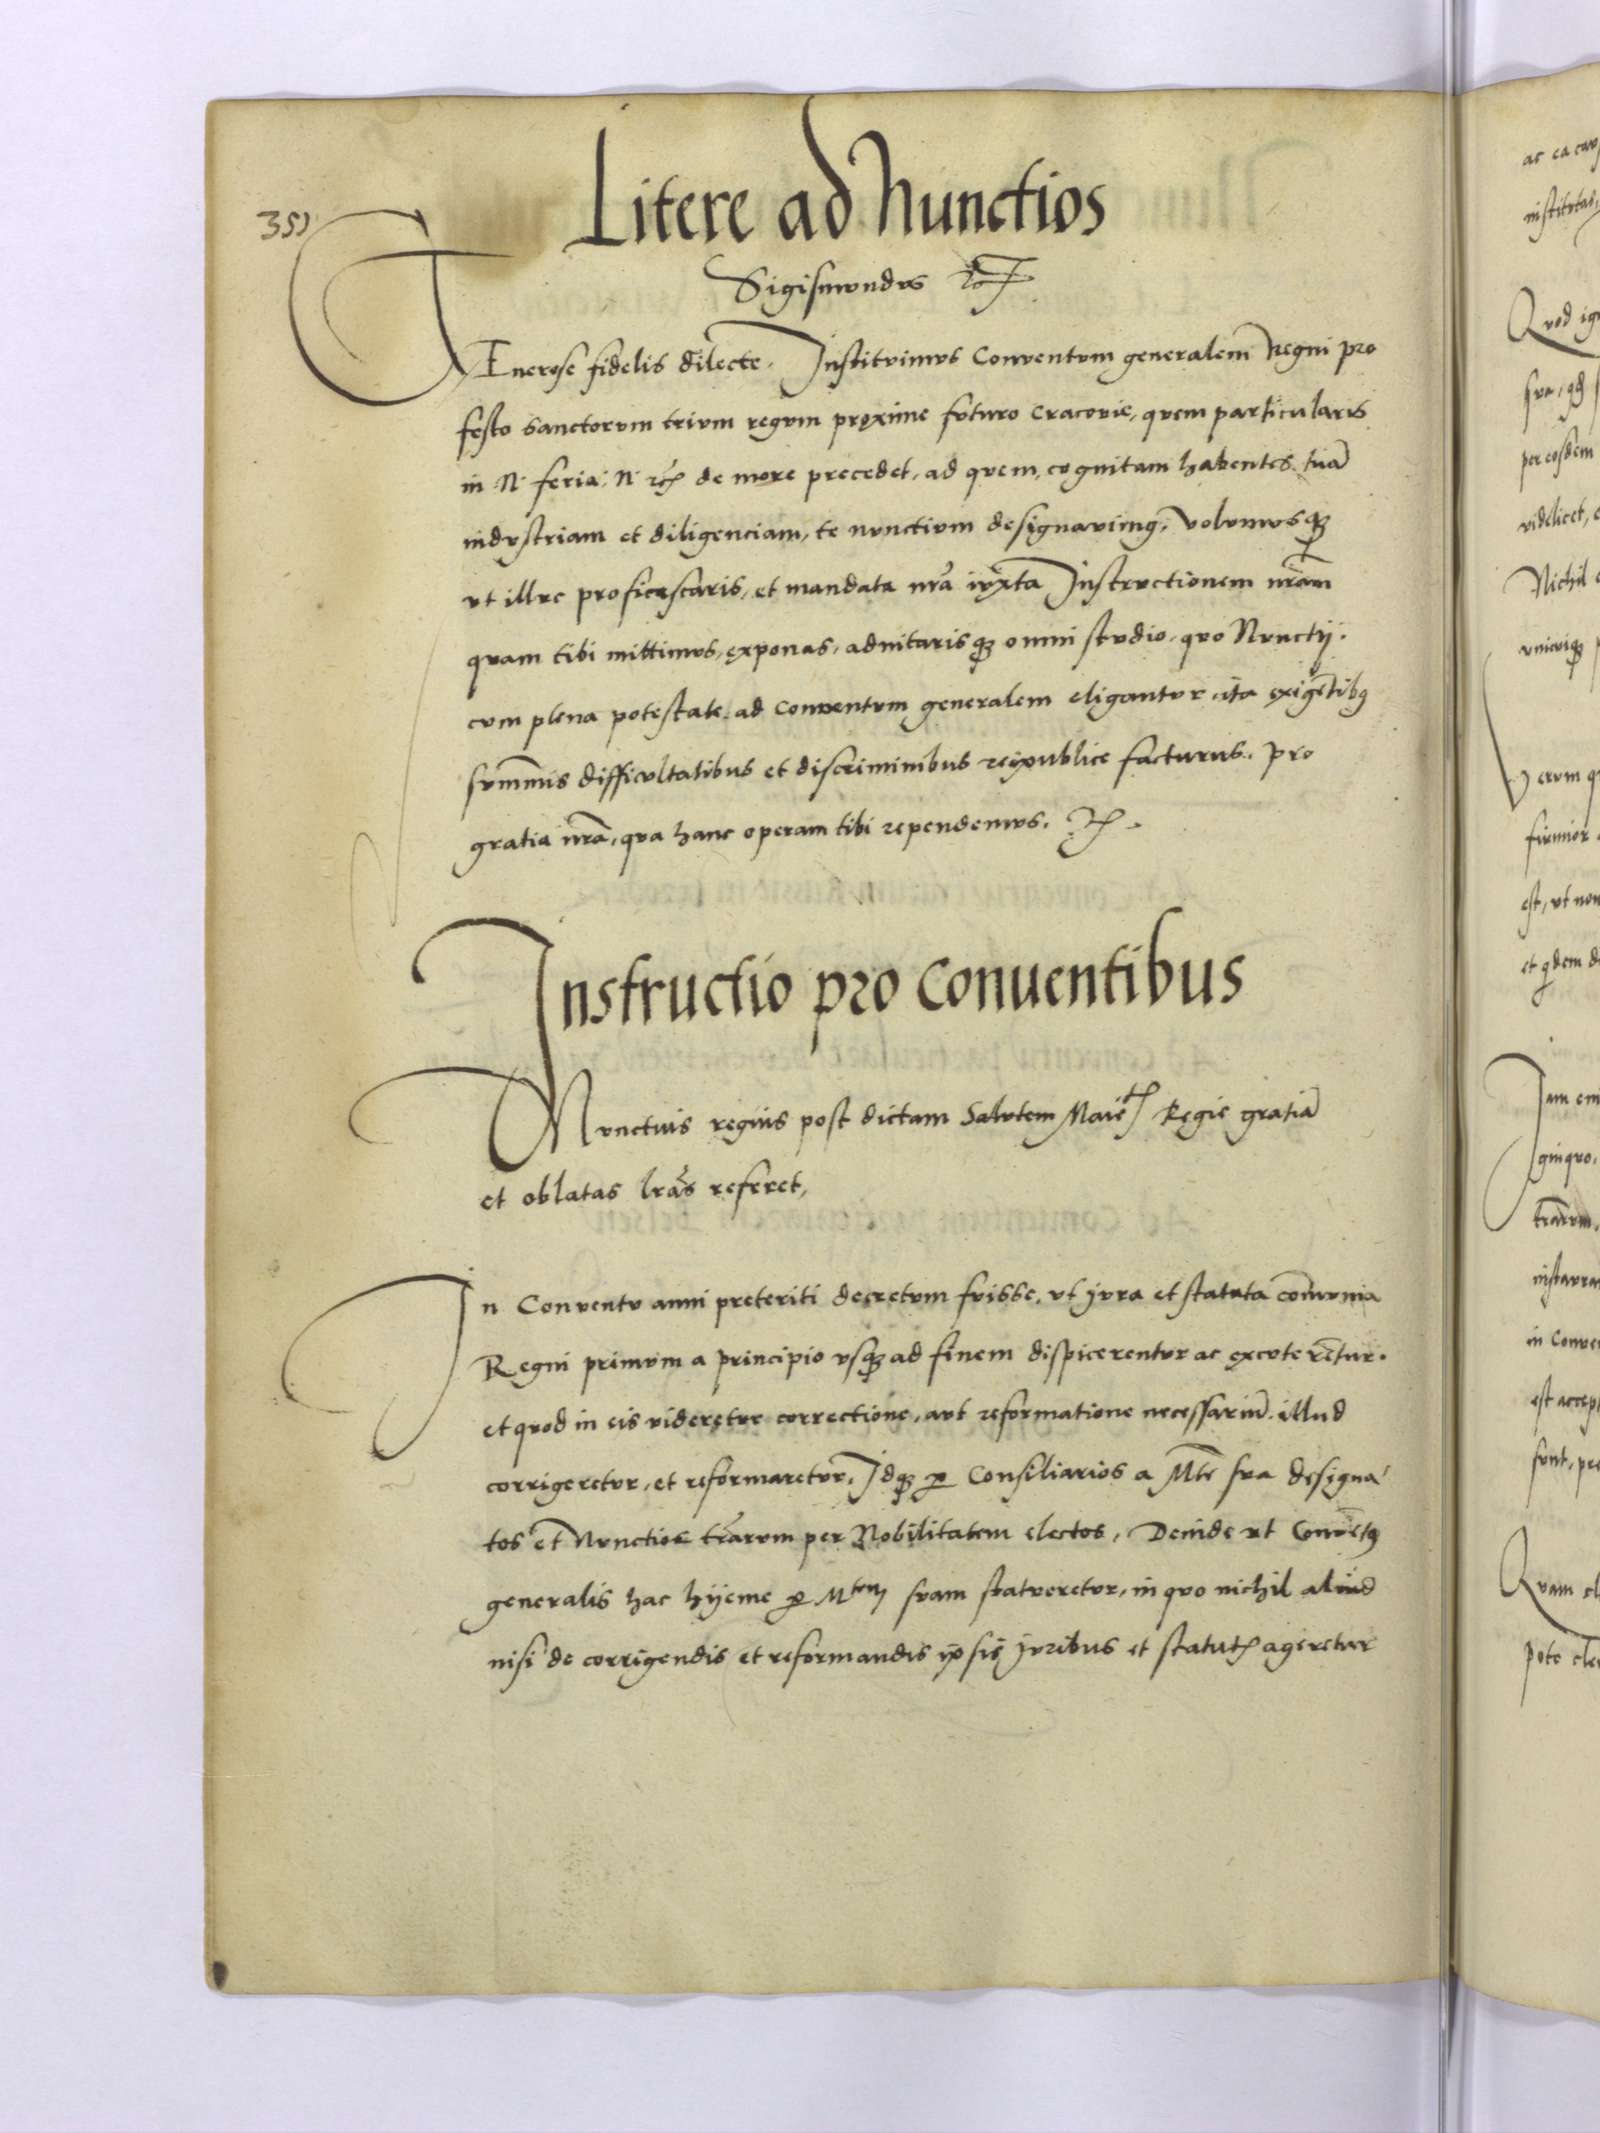 351
Litere ad Nunctios
Sigismundus
GEnerose fidelis dilecte. Instituimus Conuentum generalem Regni pro
festo sanctorum trium regum proxime futuro Cracouie, quem particularis
in N. feria. N. etc. de more precedet, ad quem, cognitam habentes tuā
industriam et diligenciam, te nunctium designauimꝰ, volumusqꝫ
vt illuc proficiscaris, et mandata nrā iuxta Instructionem nrām
quam tibi mittimus, exponas, adnitarisqꝫ omni studio, quo Nunctij
cum plena potestate ad Conuentum generalem eligantur, ita exigētibꝰ
summis difficultatibus et discriminibus reipublice facturus. pro
gratia nrā, qua hanc operam tibi rependemus. etc.
Instructio pro Conuentibus
Nunctius regius post dictam Salutem Maiētis Regie gratiā
et oblatas lrās referet,
In Conuentu anni preteriti decretum fuisse, vt jura et statuta com̄unia
Regni primum a principio vsqꝫ ad finem dispicerentur ac excuterētur.
et quod in eis videretur correctione, aut reformatione necessariū illud
corrigeretur, et reformaretur, Idqꝫ ꝑ Consiliarios a Mte sua designa
tos et Nunctios trārum per Nobilitatem electos, Deinde ut Conuētꝰ
generalis hac hyeme ꝑ Mtem suam statueretur, in quo nichil aliud
nisi de corrigendis et reformandis ipsis juribus et statutis ageretur
ac ea
institutas,
Quod
sua, qd
per eosdem
videlicet,
Nichil
vnicuiqꝫ
Verum
firmior
est, vt non
et qdem
Jam
ginquo,
trārum,
in
est
sunt,
Quam